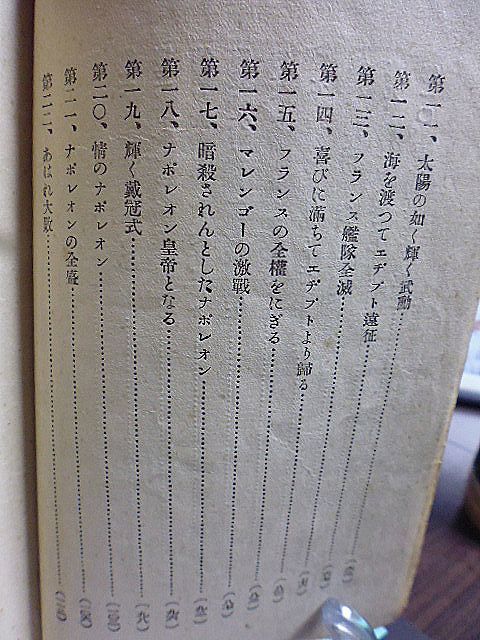 第一一、太陽の如く輝く武勳
第一二、海を渡つてエヂプト遠征
第一三、フランス艦隊全滅
第一四、喜びに滿ちてエヂプトより歸る
第一五、フランスの全權をにぎる
第一六、マレンゴーの激戰
第一七、暗殺されんとしたナポレオン
第一八、ナポレオン皇帝となる
第一九、輝く戴冠式
第二〇、情のナポレオン
第二一、ナポレオンの全盛
第二二、あはれ大敗